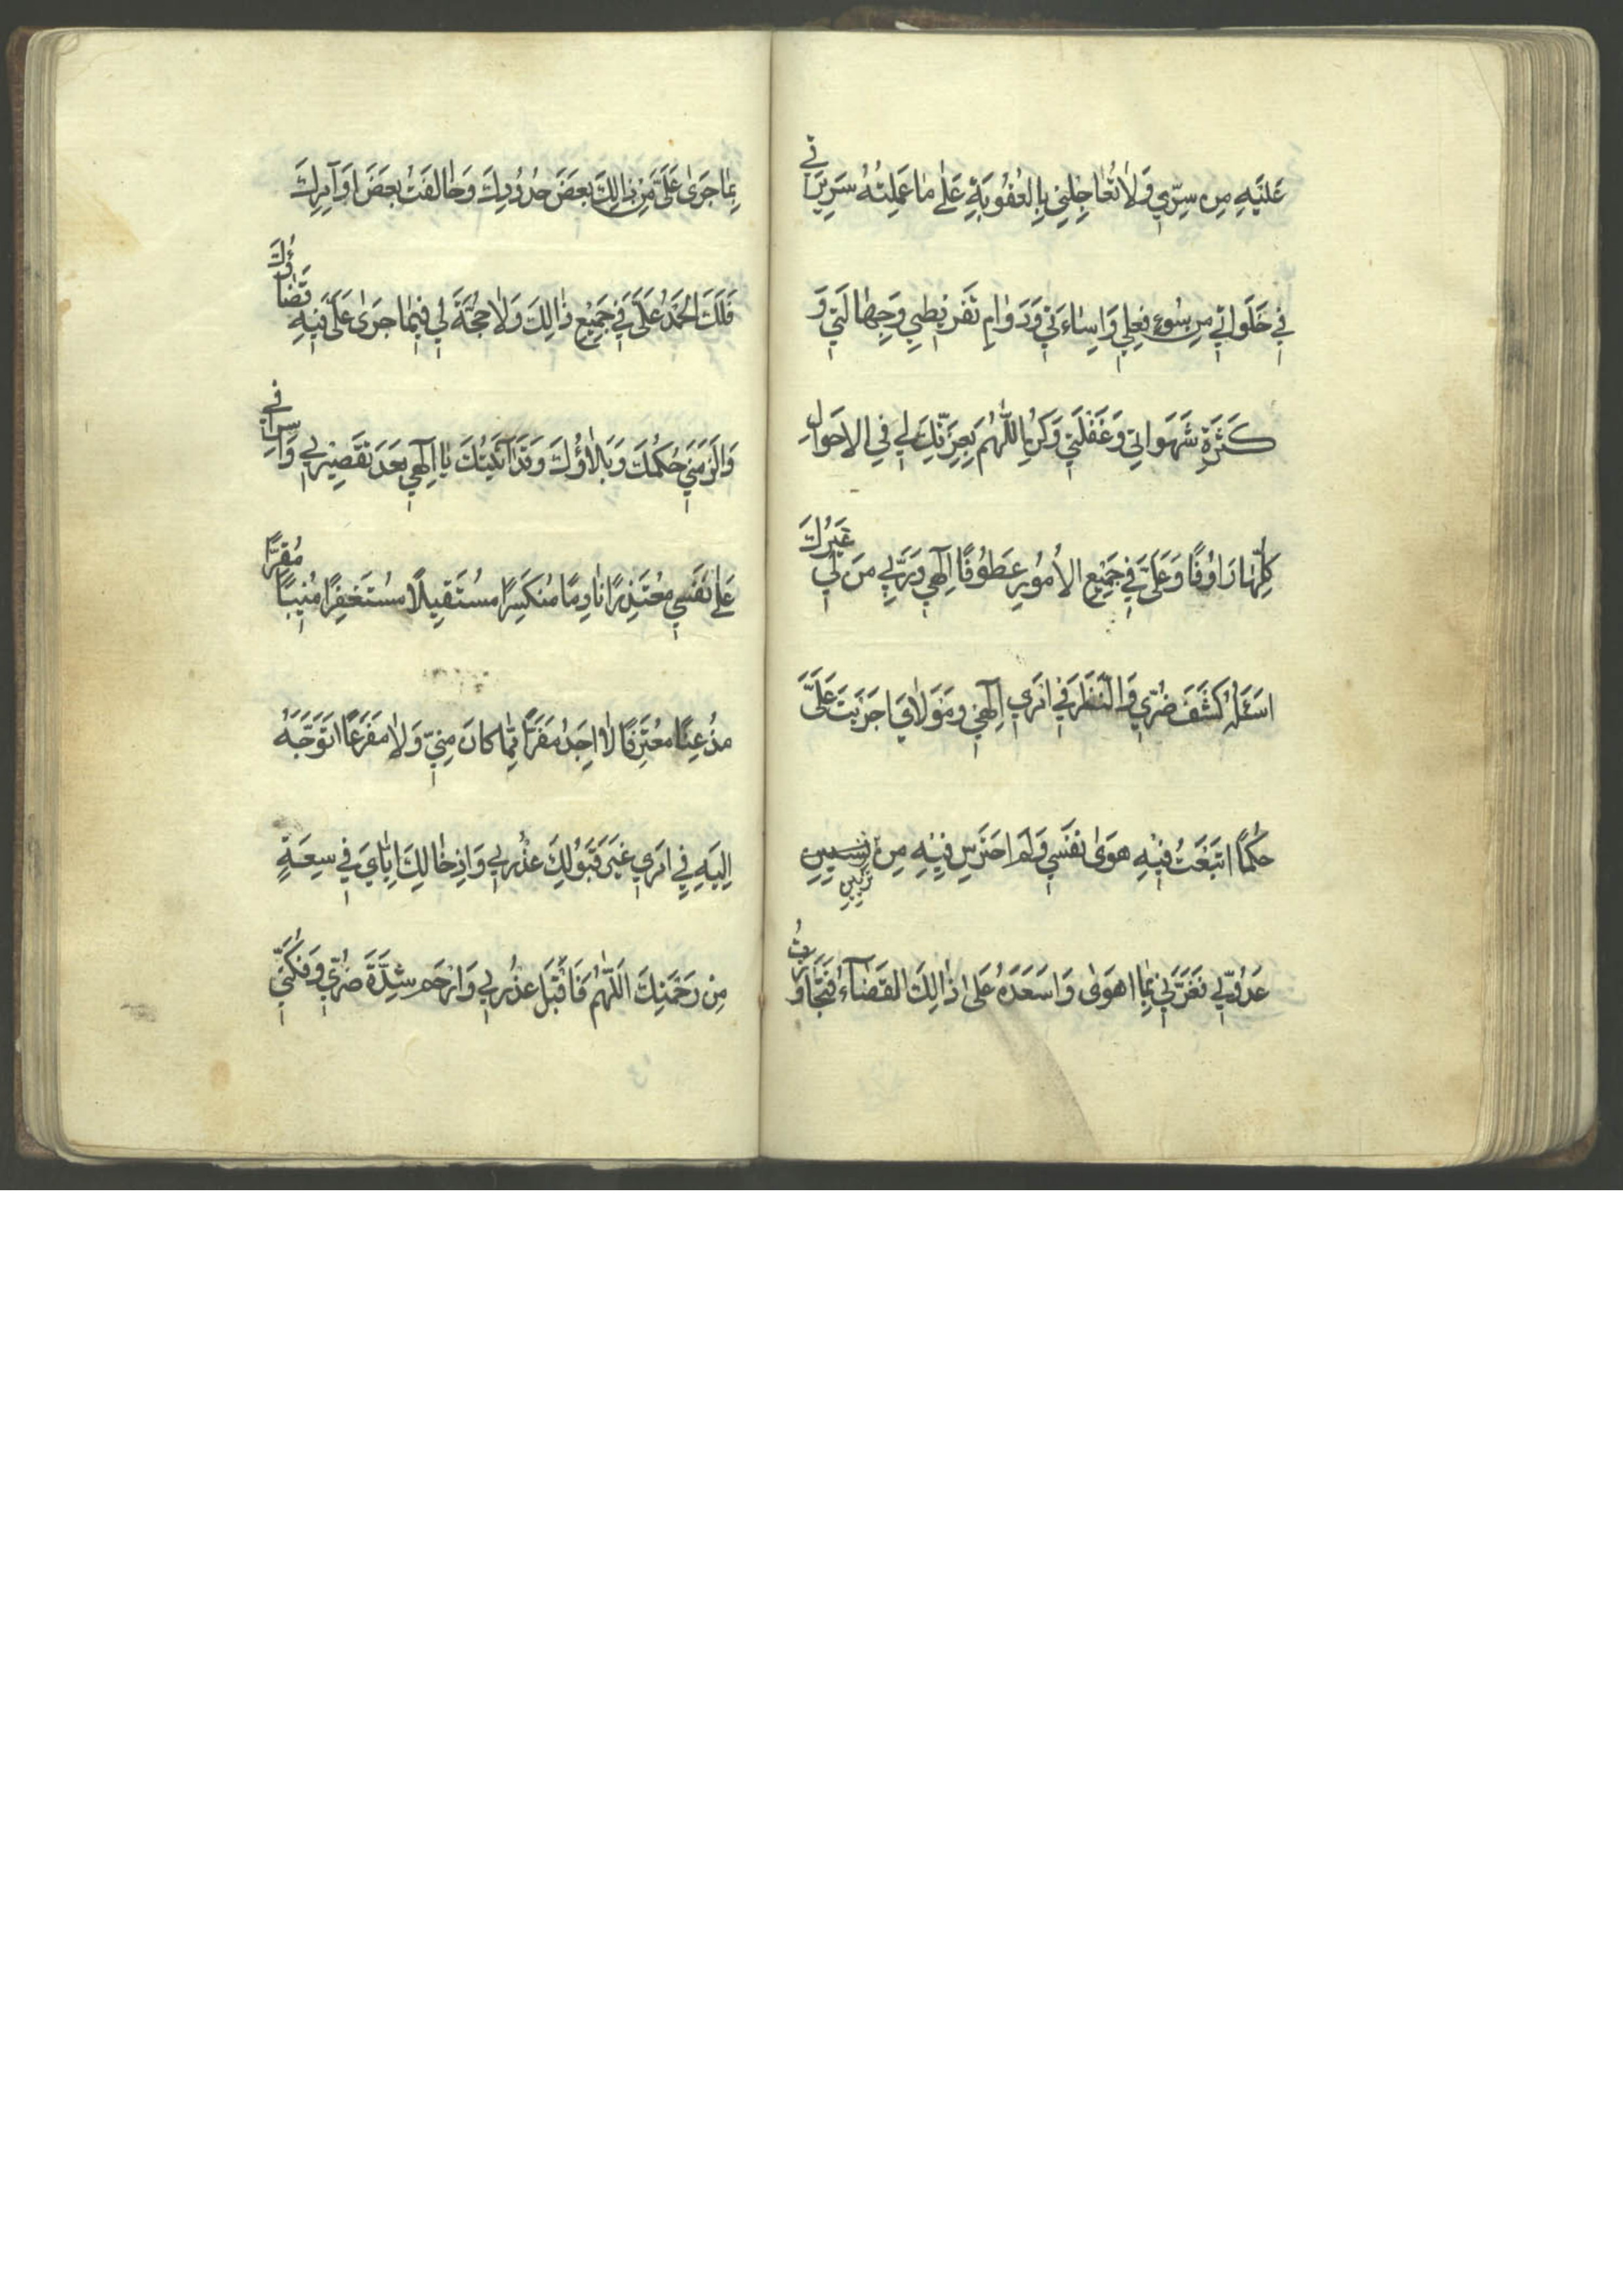 عَلَيْهِ مِنْ سِرّي وَلاٰ تُعٰاجِلْني بِالْعُقُوبَةِ عَلٰى مٰا عَمِلْتُهُ سَرِيرَاتي
في خَلَوٰاتي مِنْ سُوءِ فِعْلي وَاِسٰاءَتي وَدَوٰامِ تَفْرِيطي وَجِهٰالَتي وَ
كَثْرَةِ شَهَوٰاتي وَغَفْلَتي وَكُنِ اللّٰهُمَ بِعِزَّتِكَ لي فِي الاَحْوٰالِ
كُلِّهٰا رَاوُفًا وَعَلَيَّ في جَمِيعِ الاُمُورِ عَطُوفًا اِلٰهي وَرَبّي مَنْ لي غَيْرُكَ
اَسْئَلُهُ كَشْفَ ضُرّي وَالنَّظَرَ في اَمْري اِلٰهي وَمَوْلاٰيَ اَجْرَيْتَ عَلَيَّ
حُكْمًا اتَّبَعْتُ فيٖهِ هَوٰى نَفْسي وَلَمْ اَحْتَرِسْ فيٖهِ مِنْ تَزْيينِ
عَدُوّي لي فَغَرَّني بِمٰا اَهْوٰى وَاَسْعَدَهُ عَلىٰ ذٰالِكَ الْقَضٰآءُ فَتَجٰاوَزْتُ
بِمٰا جَرٰى عَلَيَّ مِنْ ذٰالِكَ بَعْضَ حُدُودِكَ وَخٰالَفْتُ بَعْضَ اَوٰآمِرِكَ
فَلَكَ الْحَمْدُ عَلَيَّ في جَمِيعِ ذٰالِكَ وَلاٰ حُجَّةَ لي فيٖمٰا جَرٰى عَلَيَّ فيٖهِ قَضٰاؤُكَ
وَاَلْزَمَني حُكْمُكَ وَبَلاٰؤُكَ وَقَدْ آتَيْتُكَ يٰا اِلٰهي بَعْدَ تَقْصيٖري وَاِسْرٰافي
عَلىٰ نَفْسي مُعْتَذِرًا نٰادِمًا مُنْكَسِرًا مُسْتَقيٖلاً مُسْتَغْفِرًا مُنيٖبًا مُقِرًّا
مُذْعِنًا مُعْتَرِفًا لاٰ اَجِدُ مَفَرًّا مِمّٰا كٰانَ مِنّي وَلاٰ مَفْزَعًا اَتَوَجَّهُ
اِلَيْهِ في اَمْري غَيْرَ قَبُولِكَ عُذْري وَاِدْخٰالِكَ اِيّٰايَ في سِعَةٍ
مِنْ رَحْمَتِكَ اَللّٰهُمَ فَاقْبَلْ عُذْري وَارْحَمْ شِدَّةَ ضُرّي وَفُكَّني